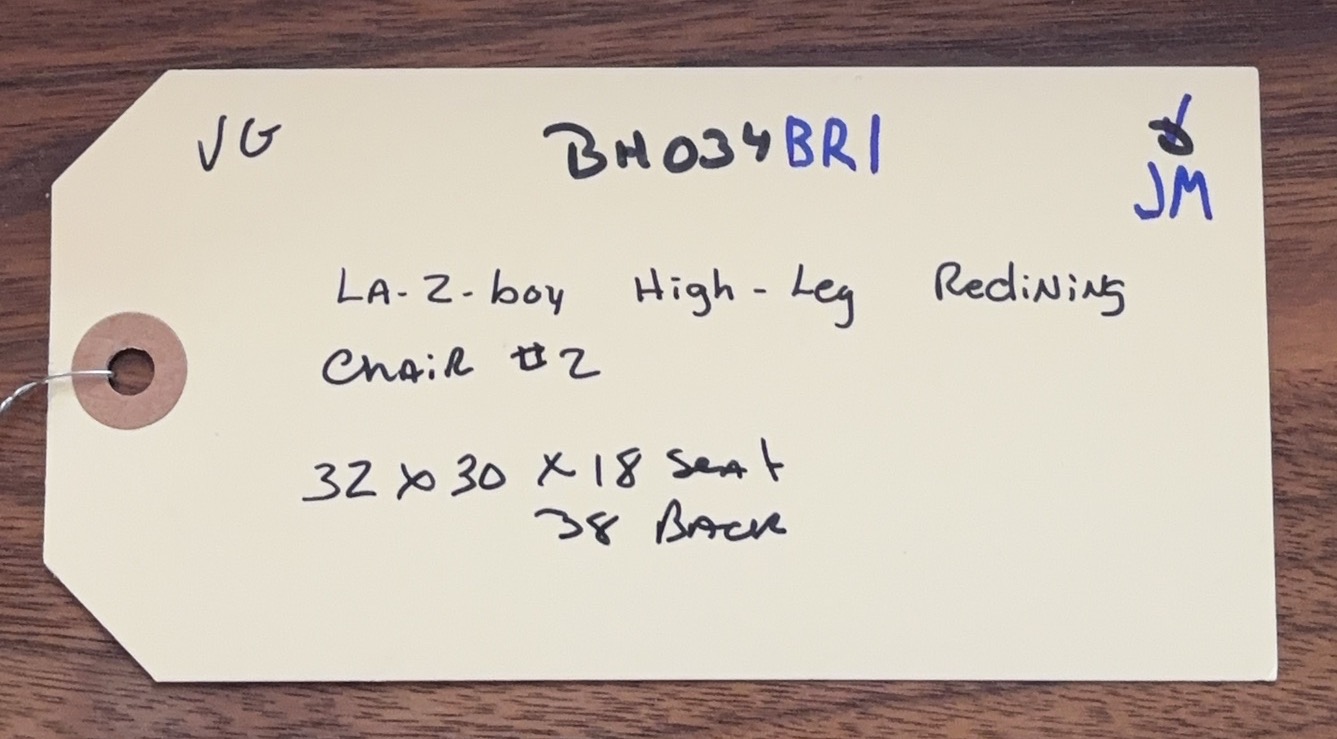 VG BH034BR1
JM
LA-Z-boy High-Leg Reclining
Chair #2
32 x 30 x 18 Seat
38 Back